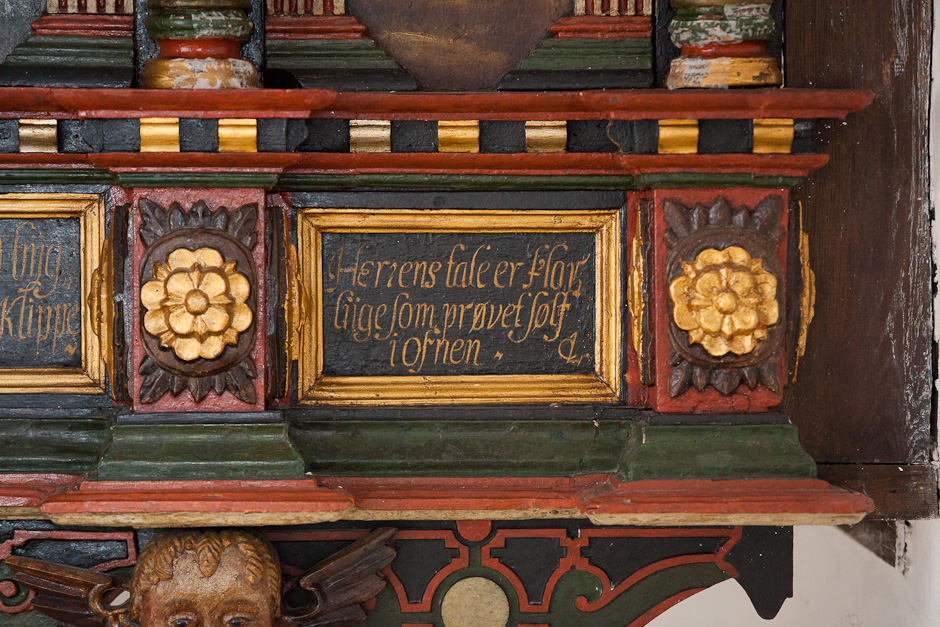 ling
klippe.
Herrens tale er klar,
liige som prøvet sølf
i ofnen.